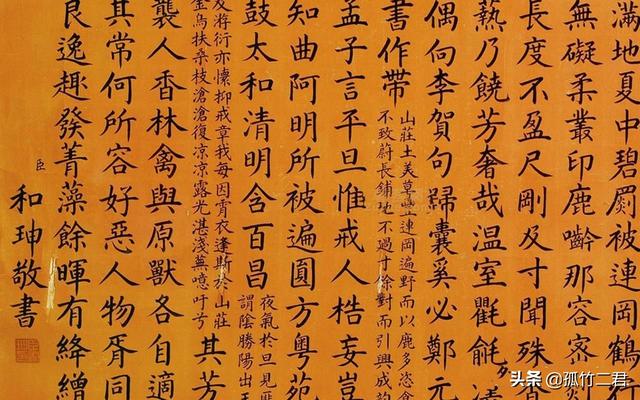 滿地夏中碧罽被連岡鶴行
無礙柔叢印鹿齡那容宻
長度不盈尺剛及寸聞殊
爇乃饒芳奢哉温室氍毹
偶句李賀句歸囊奚必鄭元
書作帶
山莊土美草豐連岡遍野而以鹿多恣食
不致蔚長鋪地不過寸餘對而引興成
孟子言平旦惟戒人梏妄豈
知曲阿明所被遍圓方粤苑
鼓太和清明含百昌
夜氣於旦見
謂陰勝陽出
及將衍亦懷抑戒章我每因霄衣逢斯於山莊
金烏扶桑枝滄滄復凉凉露光湛淺蕪噫吁兮
其芳
襲人香林禽與原獸各自適
其常何所容好惡人物胥同
良逸趣發菁藻餘暉有絳繒
臣
和珅敬書
头条 @孤竹二君